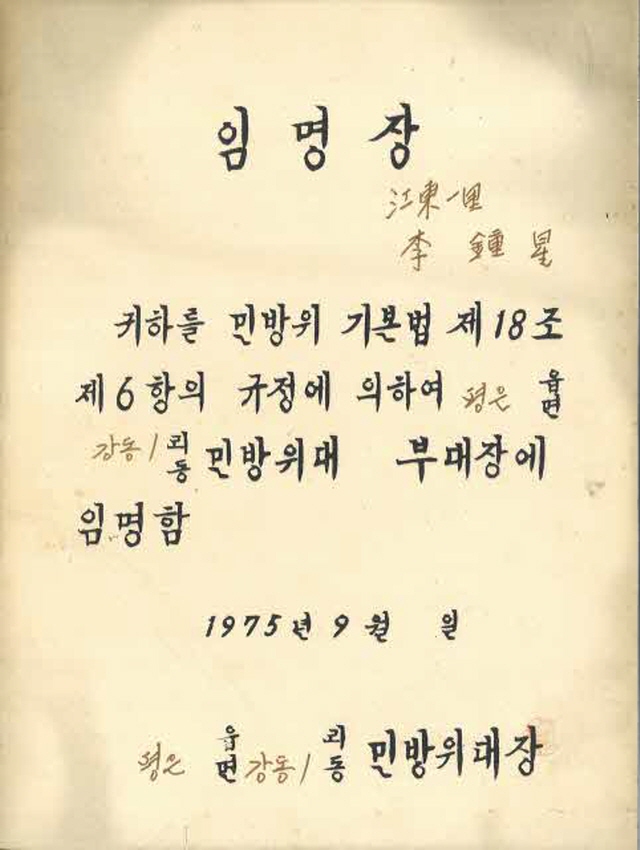 임명장
江東一里
李 鍾 星
귀하를 민방위 기본법 제18조
제6항의 규정에 의하여 평은 읍면
강동1 리동 민방위대 부대장에
임명함
1975년 9월 일
평은 읍면 강동1 리동 민방위대장